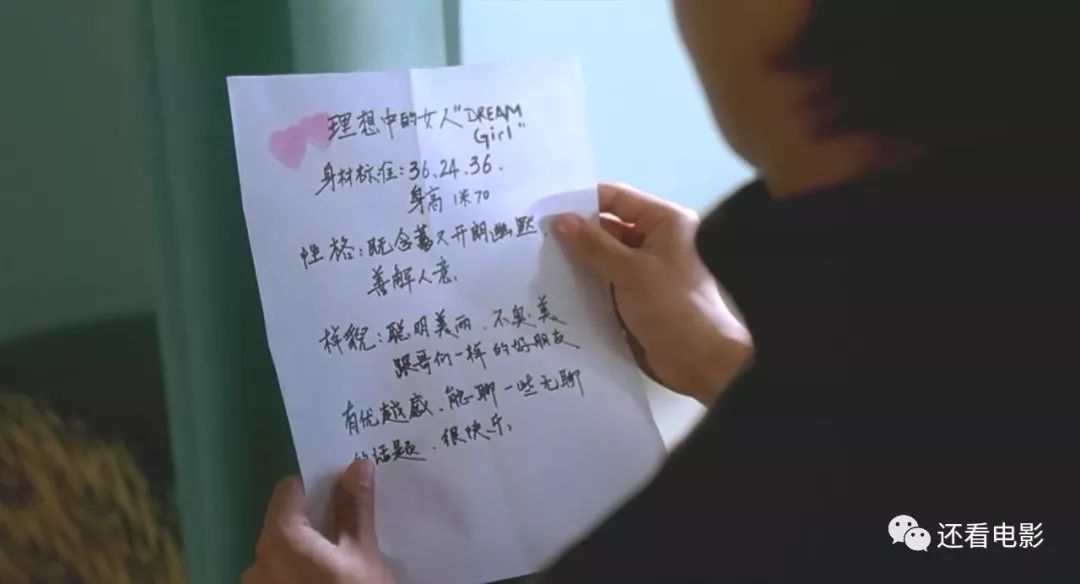 理想中的女人“DREAM
Girl”
身材标准:36.24.36.
身高 1米70
性格:既含蓄又开朗幽默、
善解人意、
样貌:聪明美丽、不臭美
跟哥们一样的好朋友
有优越感、能聊一些无聊
的话题、很快乐、
还看电影